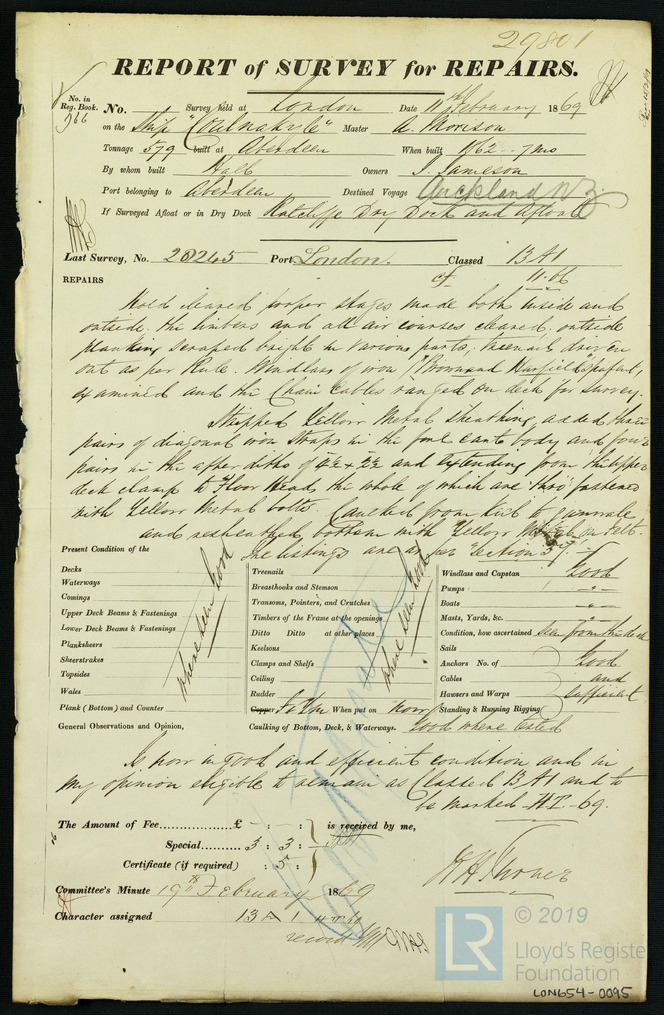 29801
REPORT of SURVEY for REPAIRS.
No. in Reg. Book. 966
No. Survey held at London Date 11th February 1869
on the Ship "Coulnakyle" Master A. Morison
Tonnage 579 built at Aberdeen When built 1862 - 7 mo
By whom built Hall Owners J. Jameson
Port belonging to Aberdeen Destined Voyage Auckland N Z
If Surveyed Afloat or in Dry Dock Ratcliffe Dry Dock and Afloat
Last Survey, No. 26245 Port London Classed 13 A1
REPAIRS
Hold cleared proper stages made both inside and
outside. the limbers and all air courses cleared. outside
planking scraped bright in various parts. treenails driven
out as per Rule. Windlass of iron "Brown and Harfield's" patent,
examined and the Chain Cables ranged on deck for survey.
Stripped Yellow Metal Sheathing, added three
pairs of diagonal iron straps in the fore cant body and four
pairs in the after ditto of and extending from the upper
deck clamp to Floor Heads the whole of which are "thro" fastened
with Yellow Metal bolts. Caulked from Keel to gunwale
and resheathed bottom with Yellow Metal on Felt.
The listings are as per Section
Present Condition of the
Decks
Waterways
Comings
Upper Deck Beams & Fastenings
Lower Deck Beams & Fastenings
Planksheers
Sheerstrakes
Topsides
Wales
Plank (Bottom) and Counter
where seen Good
Treenails
Breasthooks and Stemson
Transoms, Pointers, and Crutches
Timbers of the Frame at the openings
Ditto Ditto at other places
Keelsons
Clamps and Shelfs
Ceiling
Rudder
where seen Good
Copper When put on now
Windlass and Capstan Good
Pumps "
Boats "
Masts, Yards, &c. "
Condition, how ascertained seen from the deck
Sails
Anchors No. of Good
Cables and
Hawsers and Warps sufficient
Standing & Running Rigging
General Observations and Opinion, Caulking of Bottom, Deck, & Waterways. Good where tested
Is now in good and efficient condition and in
my opinion eligible to remain as Classed 13 A1 and to
be marked -69.
The Amount of Fee £ - : - : is received by me,
Special 3 : 3 :
Certificate (if required) : 5 :
Committee's Minute 19th February 1869
Character assigned 13 A 1
© 2019
LR
Lloyd's Register
Foundation
LON654-0095